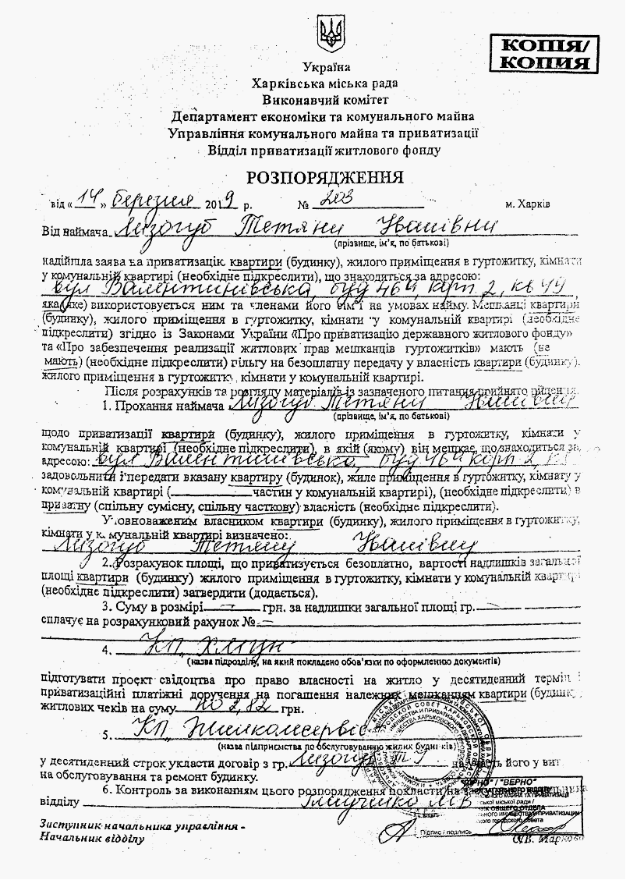 КОПІЯ/
КОПИЯ
Україна
Харківська міська рада
Виконавчий комітет
Департамент економіки та комунального майна
Управління комунального майна та приватизації
Відділ приватизації житлового фонду
РОЗПОРЯДЖЕННЯ
від « 14 » березня 2019 р. № 203 м. Харків
Від наймача Лизогуб Тетяни
(прізвище, ім'я, по батькові)
надійшла заява на приватизацію квартири (будинку), жилого приміщення в гуртожитку, кімнати
у комунальній квартирі (необхідне підкреслити), що знаходиться за адресою:
вул Валентинівська буд 46
яка(яке) використовується ним та членами його сім'ї на умовах найму. Мешканці квартири
(будинку), жилого приміщення в гуртожитку, кімнати у комунальній квартирі (необхідне
підкреслити) згідно із Законами України «Про приватизацію державного житлового фонду»
та «Про забезпечення реалізації житлових прав мешканців гуртожитків» мають (не
мають) (необхідне підкреслити) пільгу на безоплатну передачу у власність квартири (будинку),
жилого приміщення в гуртожитку, кімнати у комунальній квартирі.
Після розрахунків та розгляду матеріалів із зазначеного питання прийнято рішення:
1. Прохання наймача Лизогуб Тетяни
(прізвище, ім'я, по батькові)
щодо приватизації квартири (будинку), жилого приміщення в гуртожитку, кімнати у
комунальній квартирі (необхідне підкреслити), в якій (якому) він мешкає, що знаходиться за
адресою: вул Валентинівська, буд 46
задовольнити і передати вказану квартиру (будинок), жиле приміщення в гуртожитку, кімнату у
комунальній квартирі ( частин у комунальній квартирі), (необхідне підкреслити) в
приватну (спільну сумісну, спільну часткову) власність (необхідне підкреслити).
Уповноваженим власником квартири (будинку), жилого приміщення в гуртожитку,
кімнати у комунальній квартирі визначено:
Лизогуб Тетяну
2. Розрахунок площі, що приватизується безоплатно, вартості надлишків загальної
площі квартири (будинку) жилого приміщення в гуртожитку, кімнати у комунальній квартирі
(необхідне підкреслити) затвердити (додається).
3. Суму в розмірі — грн. за надлишки загальної площі гр. —
сплачує на розрахунковий рахунок № —
4. КП
(назва підрозділу, на який покладено обов'язки по оформленню документів)
підготувати проєкт свідоцтва про право власності на житло у десятиденний термін і
приватизаційні платіжні доручення на погашення належних мешканцям квартири (будинку)
житлових чеків на суму по 2,82 грн.
5. КП Жилкомсервіс
(назва підприємства по обслуговуванню жилих будинків)
у десятиденний строк укласти договір з гр. Лизогуб Т на участь його у
на обслуговування та ремонт будинку.
6. Контроль за виконанням цього розпорядження покласти на
відділу
Заступник начальника управління -
Начальник відділу
"ВІРНО" / "ВЕРНО"
Підпис / подпись